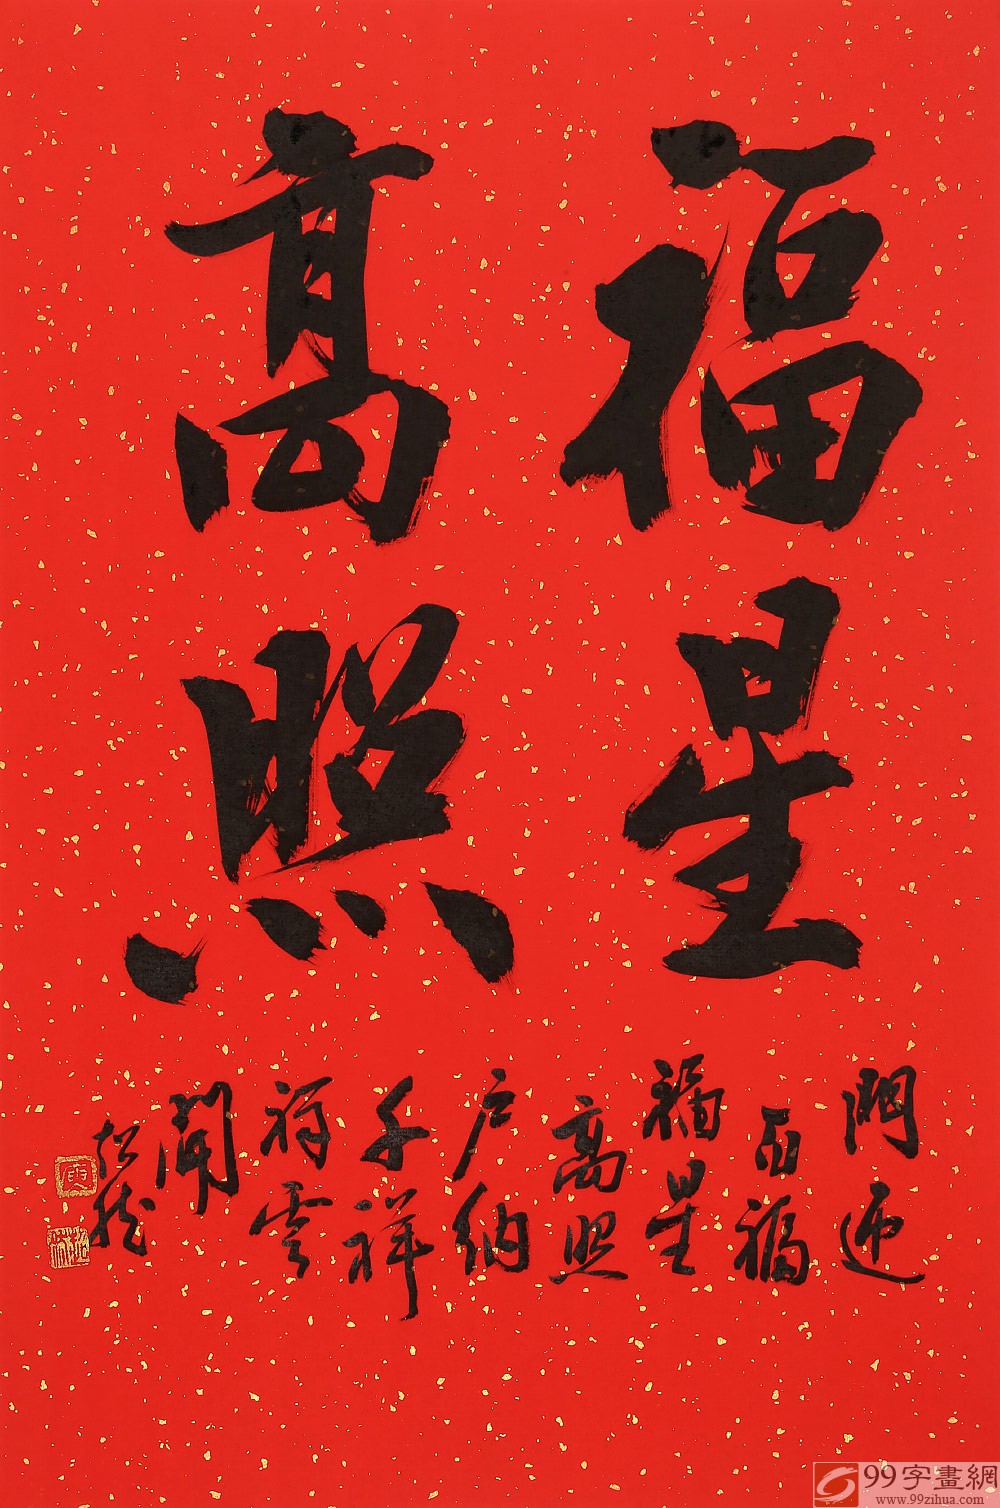 福星
高照
門迎
百福
福星
高照
户納
千祥
祥雲
開
99字畫網
www.99zihua.com